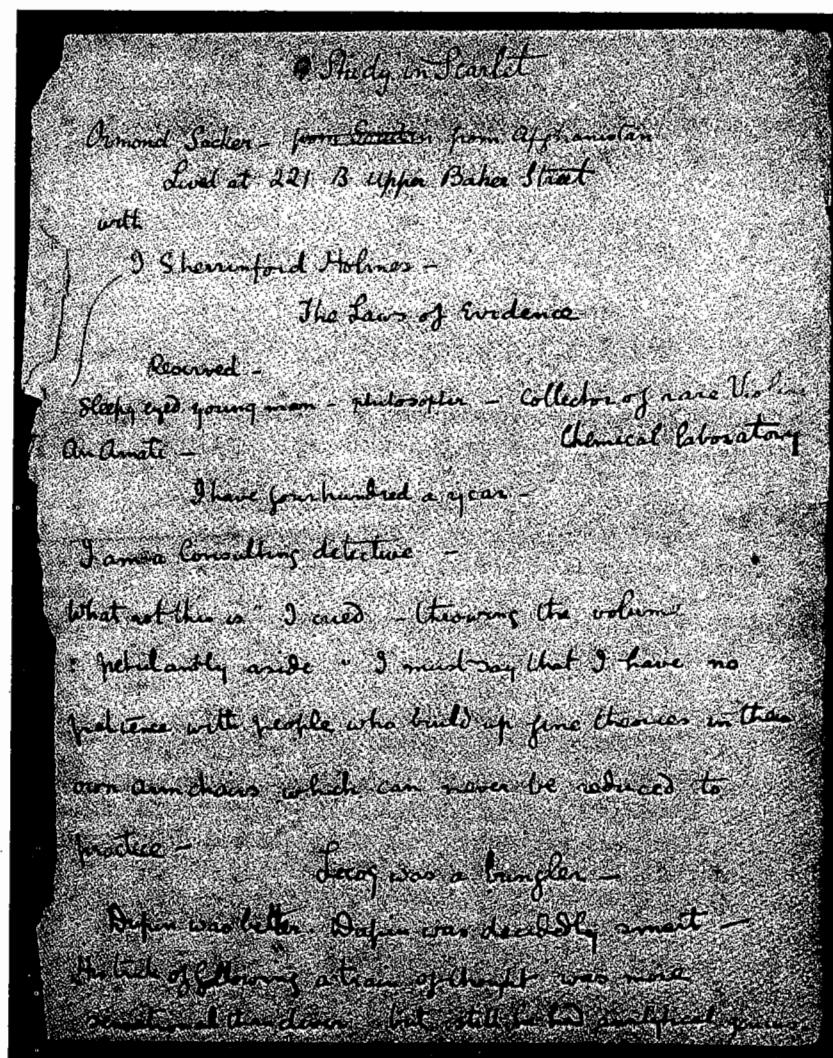 A Study in Scarlet
Ormond Sacker – from Soudan from Afghanistan
Lived at 221 B Upper Baker Street
with
I Sherrinford Holmes –
The Laws of Evidence
Reserved –
Sleepy eyed young man – philosopher – Collector of rare Violins
An Amati –
Chemical laboratory
I have four hundred a year –
I am a Consulting detective –
What rot this is" I cried – throwing the volume
: petulantly aside " I must say that I have no
patience with people who build up fine theories in their
own armchairs which can never be reduced to
practice –
Lecoq was a bungler –
Dupin was better. Dupin was decidedly smart –
His trick of following a train of thought was more
sensational than clever but still he had analytical genius.